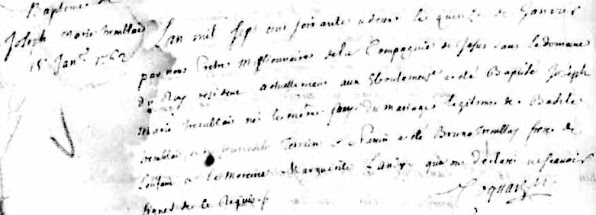 Baptême de
Joseph Marie Tremblais
15 Janv. 1762
L'an mil sept cens soixante deux le quinze de Janvier
par nous Prêtre Missionnaire de la Compagnie de Jesus dans le domaine
du Roy residant actuellement aux Eboulemens a eté Baptisé Joseph
Marie Tremblais né le même jour du mariage legitime de
Tremblais et de le Parein a eté Bruno Tremblay frere de
L'enfant et la Mareine Marguerite qui ont declaré ne sçavoir
signer de ce requis